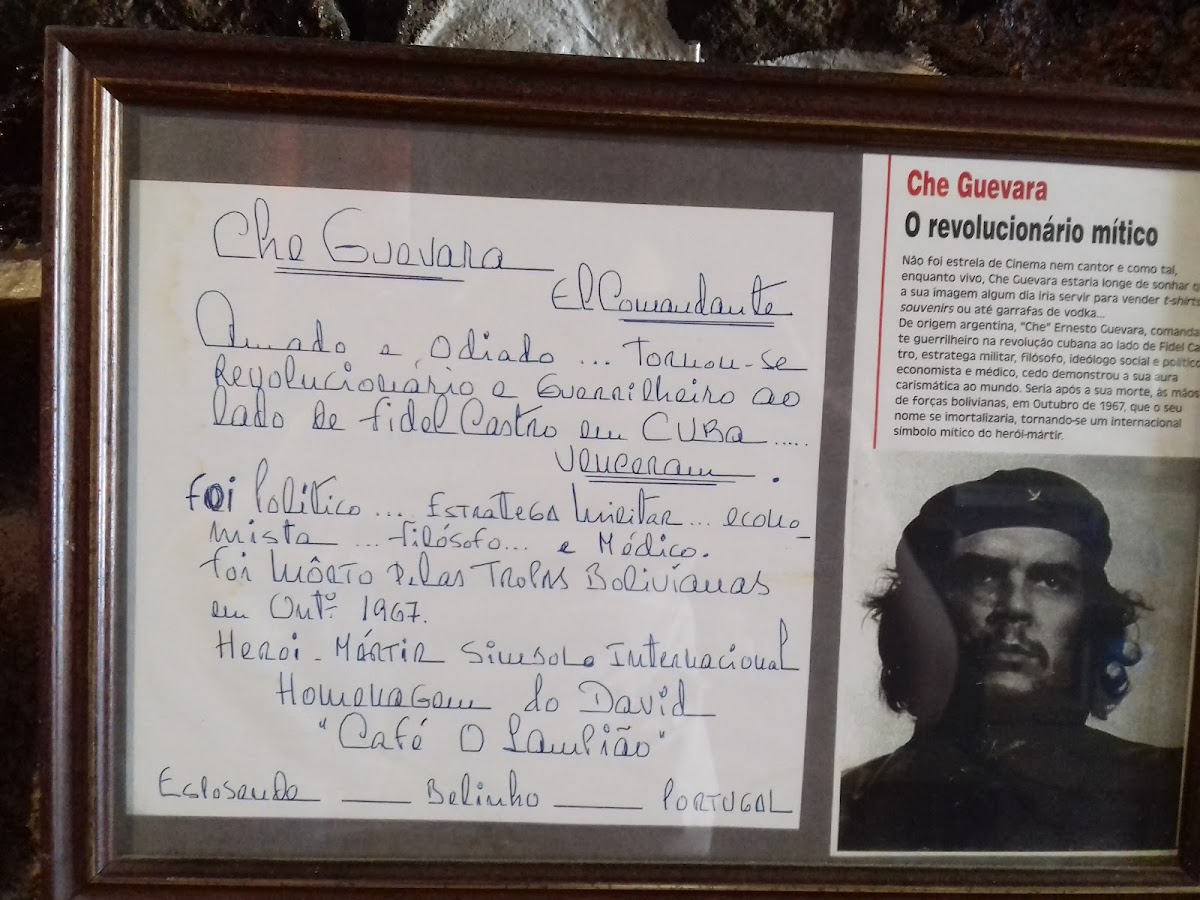 Che Guevara
El Comandante
Amado e Odiado ... Tornou-se
Revolucionário e Guerrilheiro ao
lado de Fidel Castro em CUBA .....
Venceram .
foi Político ... Estratega Militar ... econo-
mista ... filósofo ... e Médico.
foi Môrto pelas Tropas Bolivianas
em Outº 1967.
Heroi - Mártir Simbolo Internacional
Homenagem do David
"Café O Lampião"
Esposende ___ Belinho ___ PORTUGAL
Che Guevara
O revolucionário mítico
Não foi estrela de Cinema nem cantor e como tal,
enquanto vivo, Che Guevara estaria longe de sonhar q
a sua imagem algum dia iria servir para vender t-shirts
souvenirs ou até garrafas de vodka...
De origem argentina, "Che" Ernesto Guevara, comanda
te guerrilheiro na revolução cubana ao lado de Fidel Ca
tro, estratega militar, filósofo, ideólogo social e político
economista e médico, cedo demonstrou a sua aura
carismática ao mundo. Seria após a sua morte, às mãos
de forças bolivianas, em Outubro de 1967, que o seu
nome se imortalizaria, tornando-se um internacional
símbolo mítico do herói-mártir.